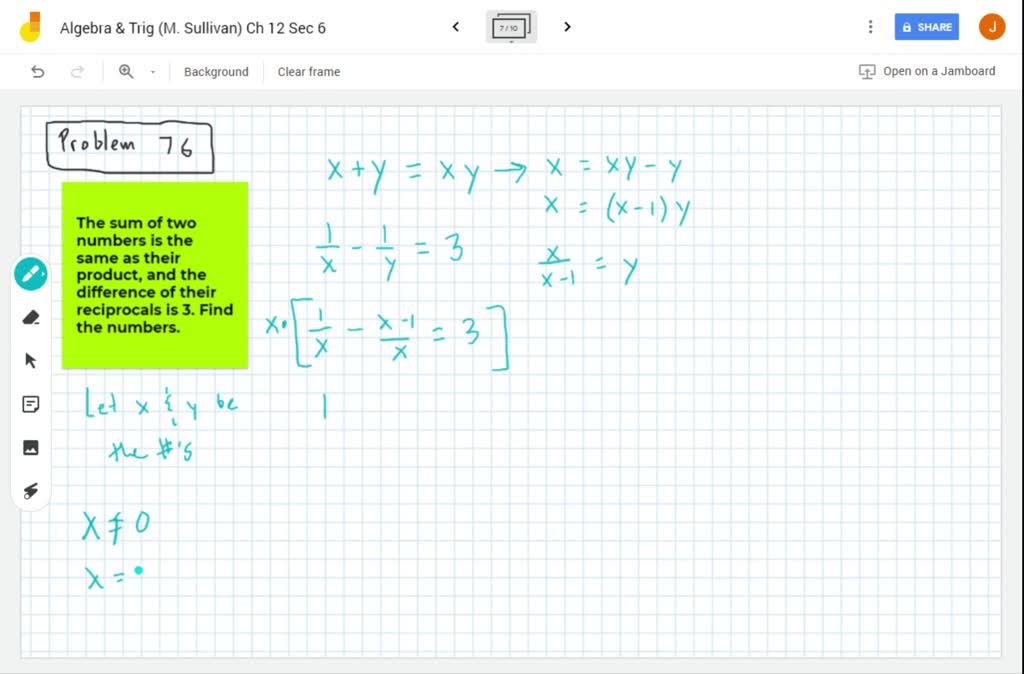 Algebra & Trig (M. Sullivan) Ch 12 Sec 6
7 / 10
SHARE
J
Background
Clear frame
Open on a Jamboard
Problem 76
The sum of two
numbers is the
same as their
product, and the
difference of their
reciprocals is 3. Find
the numbers.
x + y = xy → x = xy - y
x = (x-1) y
1/x - 1/y = 3
x/x-1 = y
x • [1/x - x-1/x = 3]
Let x & y be
the #'s
1
x ≠ 0
x =